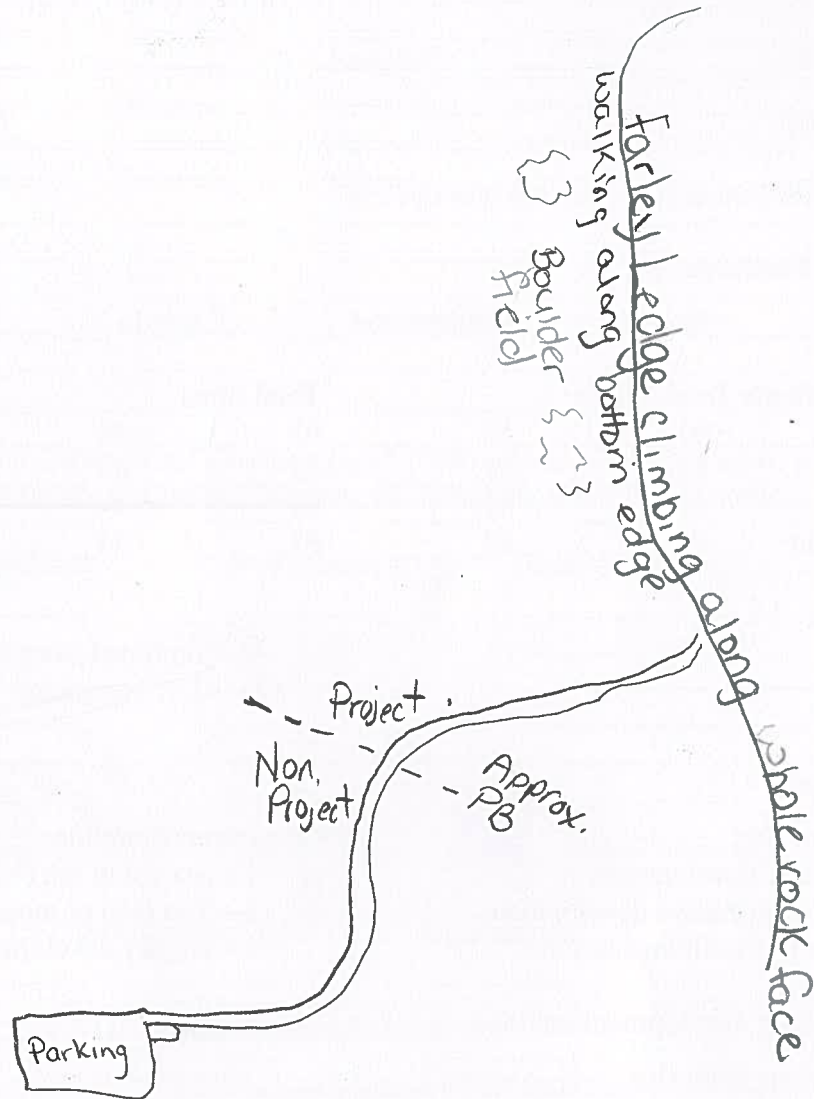 Farley ledge climbing along whole rock face
walking along bottom edge
Boulder
field
Project
Non.
Project
Approx.
PB
Parking